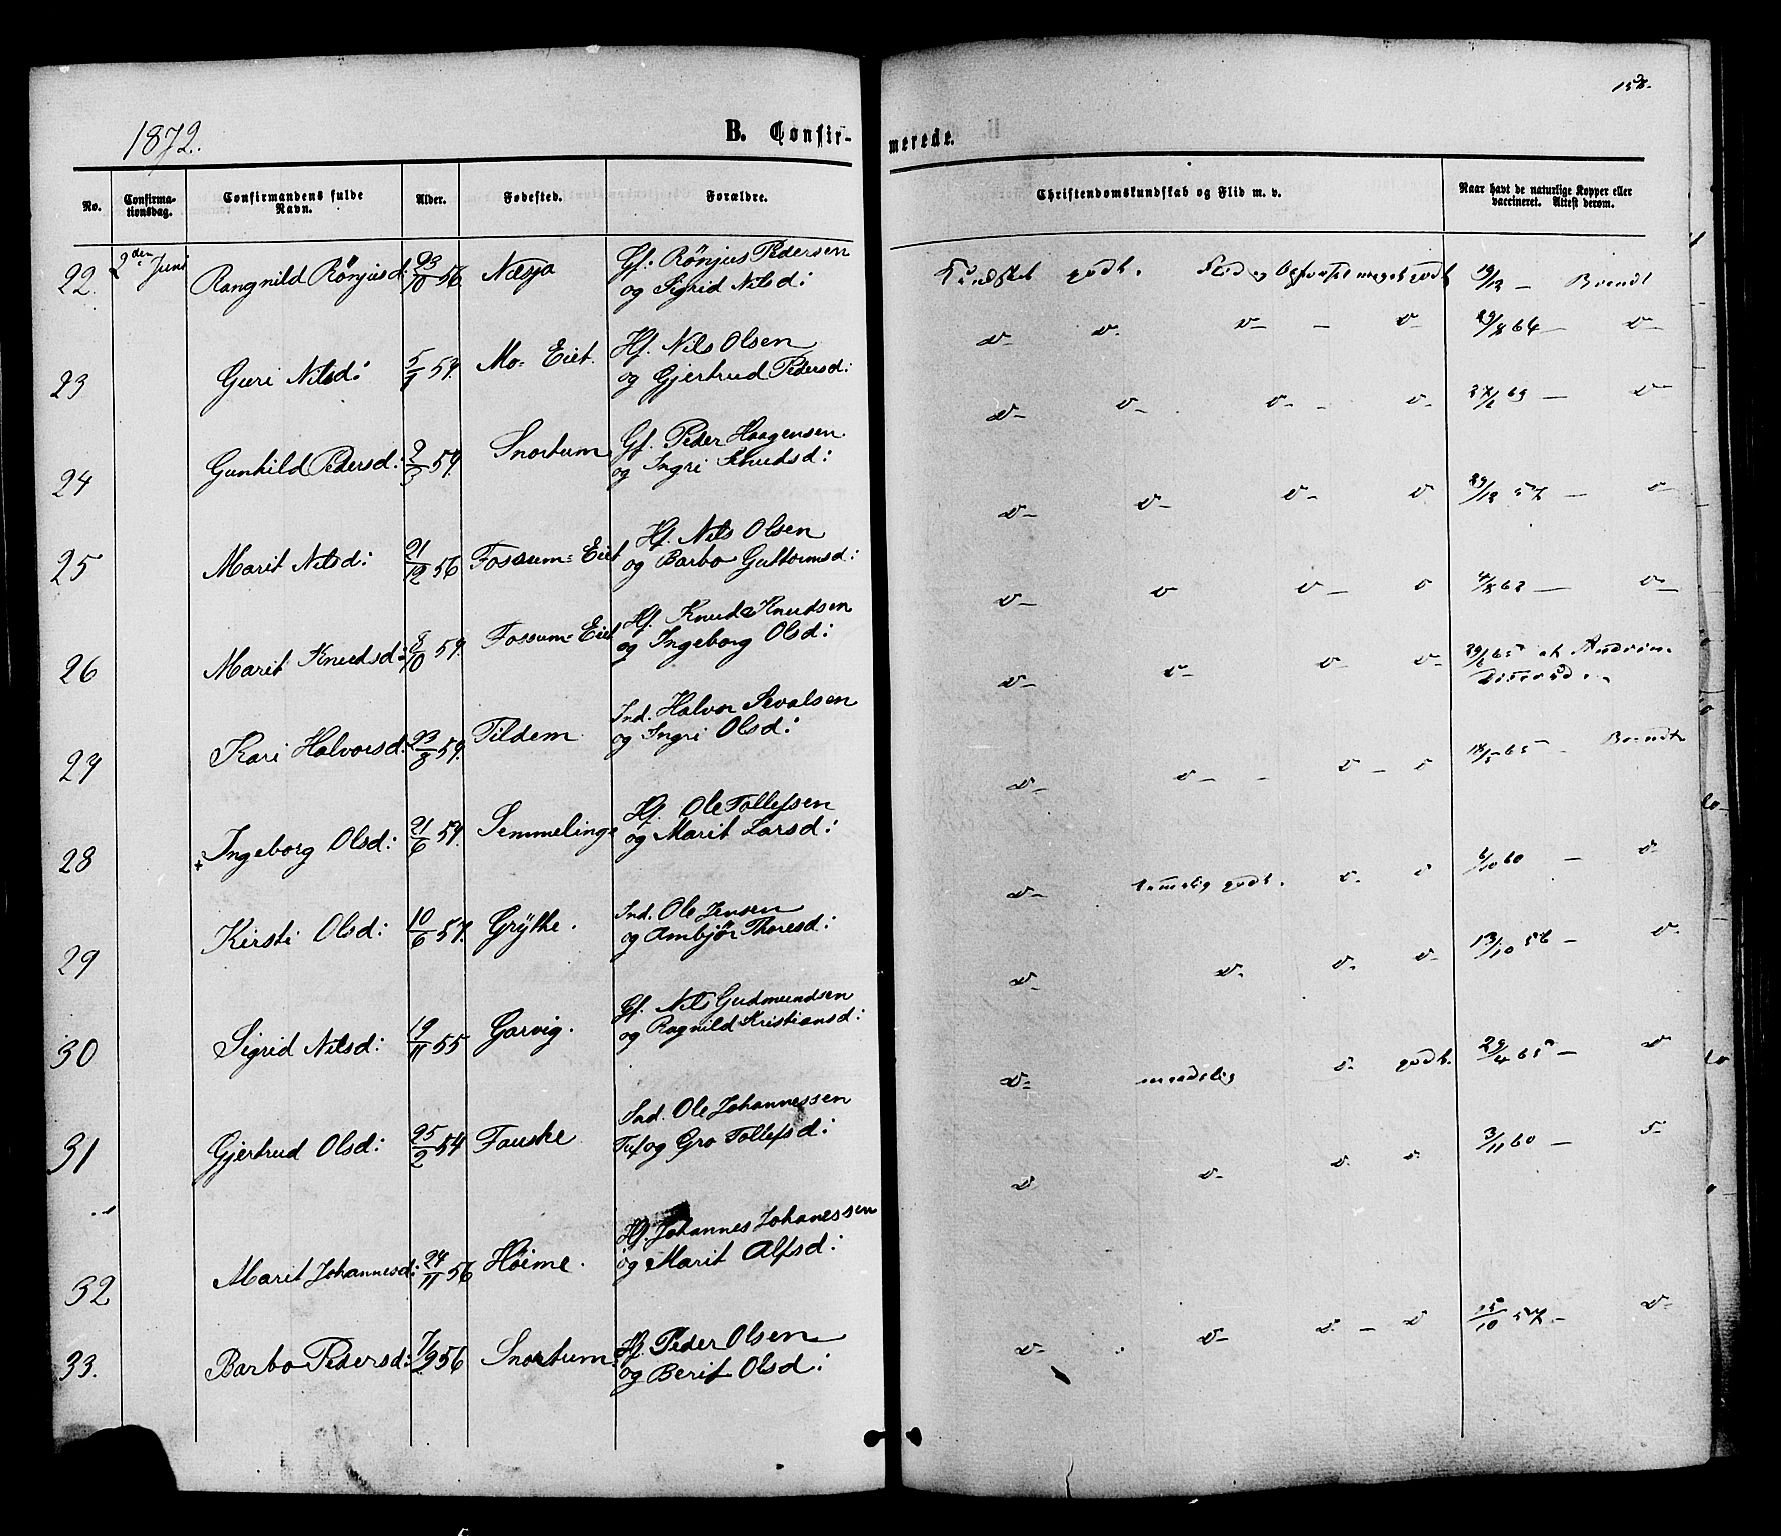 1872.
B. Confir-
merede.
No.
Confirma-
tionsdag.
Confirmandens fulde
Navn.
Alder.
Fødested.
Forældre.
Christendomskundskab og Flid m. v.
Naar havt de naturlige Kopper eller
vaccineret. Attest derom.
22. 2den Juni Rangnild Rönjusd: 23/10 56 Næsja Gf. Rönjus Pedersen
og Sigrid Nilsd:
Kundskab godt. Flid og Opførsel meget godt 19/12 — Brandt
23 Guri Nilsd: 57. Mo=Eiet. Hf. Nils Olsen
og Gjertrud Pedersd:
v— v. v— — v— 29/8 64 — v—
24 Gunhild Pedersd: 2/3 57. Snortum Gf. Peder Haagensen
og Ingri Knudsd:
v— v— v— — v— 69 — v—
25 Marit Nilsd: 21/12 56 Fossum=Eiet Hf. Nils Olsen
og Barbo Guttormsd:
v— v— v— v 29/12 57 — v—
26 Marit Knudsd: 8/10 57. Fossum=Eiet Hf. Knud Knudsen
og Ingeborg Olsd:
v— v v— v 4/8 62 — v—
27 Kari Halvorsd: 23/3 57. Tildem Ind. Halvor Sevalsen
og Ingri Olsd:
v— v— v— v— 29/6 65 at
28 Ingeborg Olsd: 21/6 57. Semmelinge Hf. Ole Tollefsen
og Marit Larsd:
v— v— — v— v 65 — Brandt
29 Kirsti Olsd: 10/6 57. Grÿthe. Ind. Ole Jensen
og Ambjør Thoresd:
v— temmelig godt. v— v 6/10 60 — v—
30 Sigrid Nilsd: 19/11 55 Garvig. Gf. Nils Gudmundsen
og Ragnild Kristiansd:
v— v— v— v— 13/10 56 — v—
31 Gjertrud Olsd: 25/2 54 Fauske Ind. Ole Johannessen
og Gro Tollefsd:
v— maadelig v— godt. 29/4 65 — v
32 Marit Johannesd: 24/11 56 Høime. Hf. Johannes Johanessen
og Marit Alfsd:
v v— v. v. 3/11 60 — v—
33. Barbo Pedersd: 7/9 56 Snortum Hf. Peder Olsen
og Berit Olsd:
v— v— v. — v 25/10 57 — v—